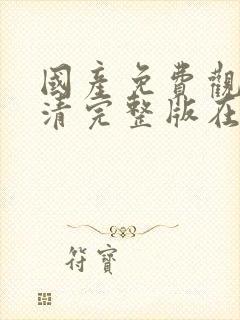 國産免費觀
清完整版在
符寶